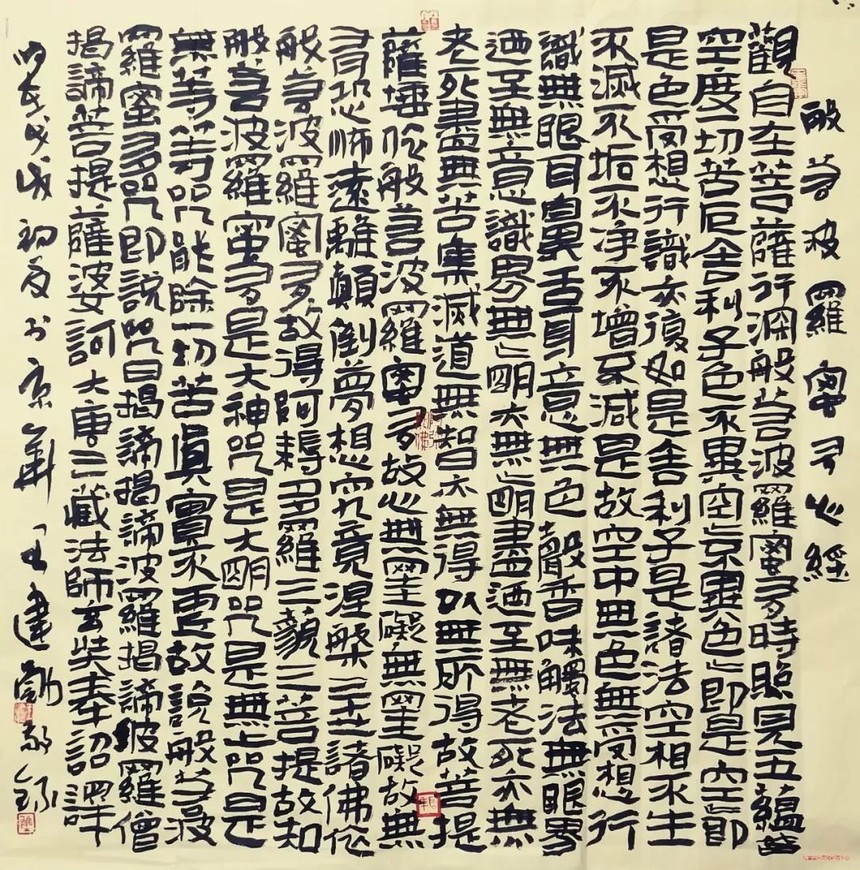 般若波羅蜜多心經
觀自在菩薩行深般若波羅蜜多時照見五蘊皆
空度一切苦厄舍利子色不異空〻不異色〻即是空〻即
是色受想行識亦復如是舍利子是諸法空相不生
不滅不垢不净不增不減是故空中無色無受想行
識無眼耳鼻舌身意無色聲香味觸法無眼界
迺至無意識界無〻明亦無〻明盡迺至無老死亦無
老死盡無苦集滅道無智亦無得以無所得故菩提
薩埵依般若波羅蜜多故心無罣礙無罣礙故無
有恐怖遠離顛倒夢想究竟涅槃三世諸佛依
般若波羅蜜多故得阿耨多羅三藐三菩提故知
般若波羅蜜多是大神咒是大明咒是無上咒是
無等等咒能除一切苦真實不虛故說般若波
羅蜜多咒即說咒曰揭諦揭諦波羅揭諦波羅僧
揭諦菩提薩婆訶 大唐三藏法師玄奘奉詔譯
戊戌初夏於京華王建勳敬錄